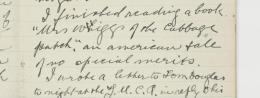 I finished reading a book
"Mrs Wiggs of the Cabbage
patch", an american tale
of no special merits.
I wrote a letter to Tom Douglas
to night at the Y.M.C.A. in reply to his